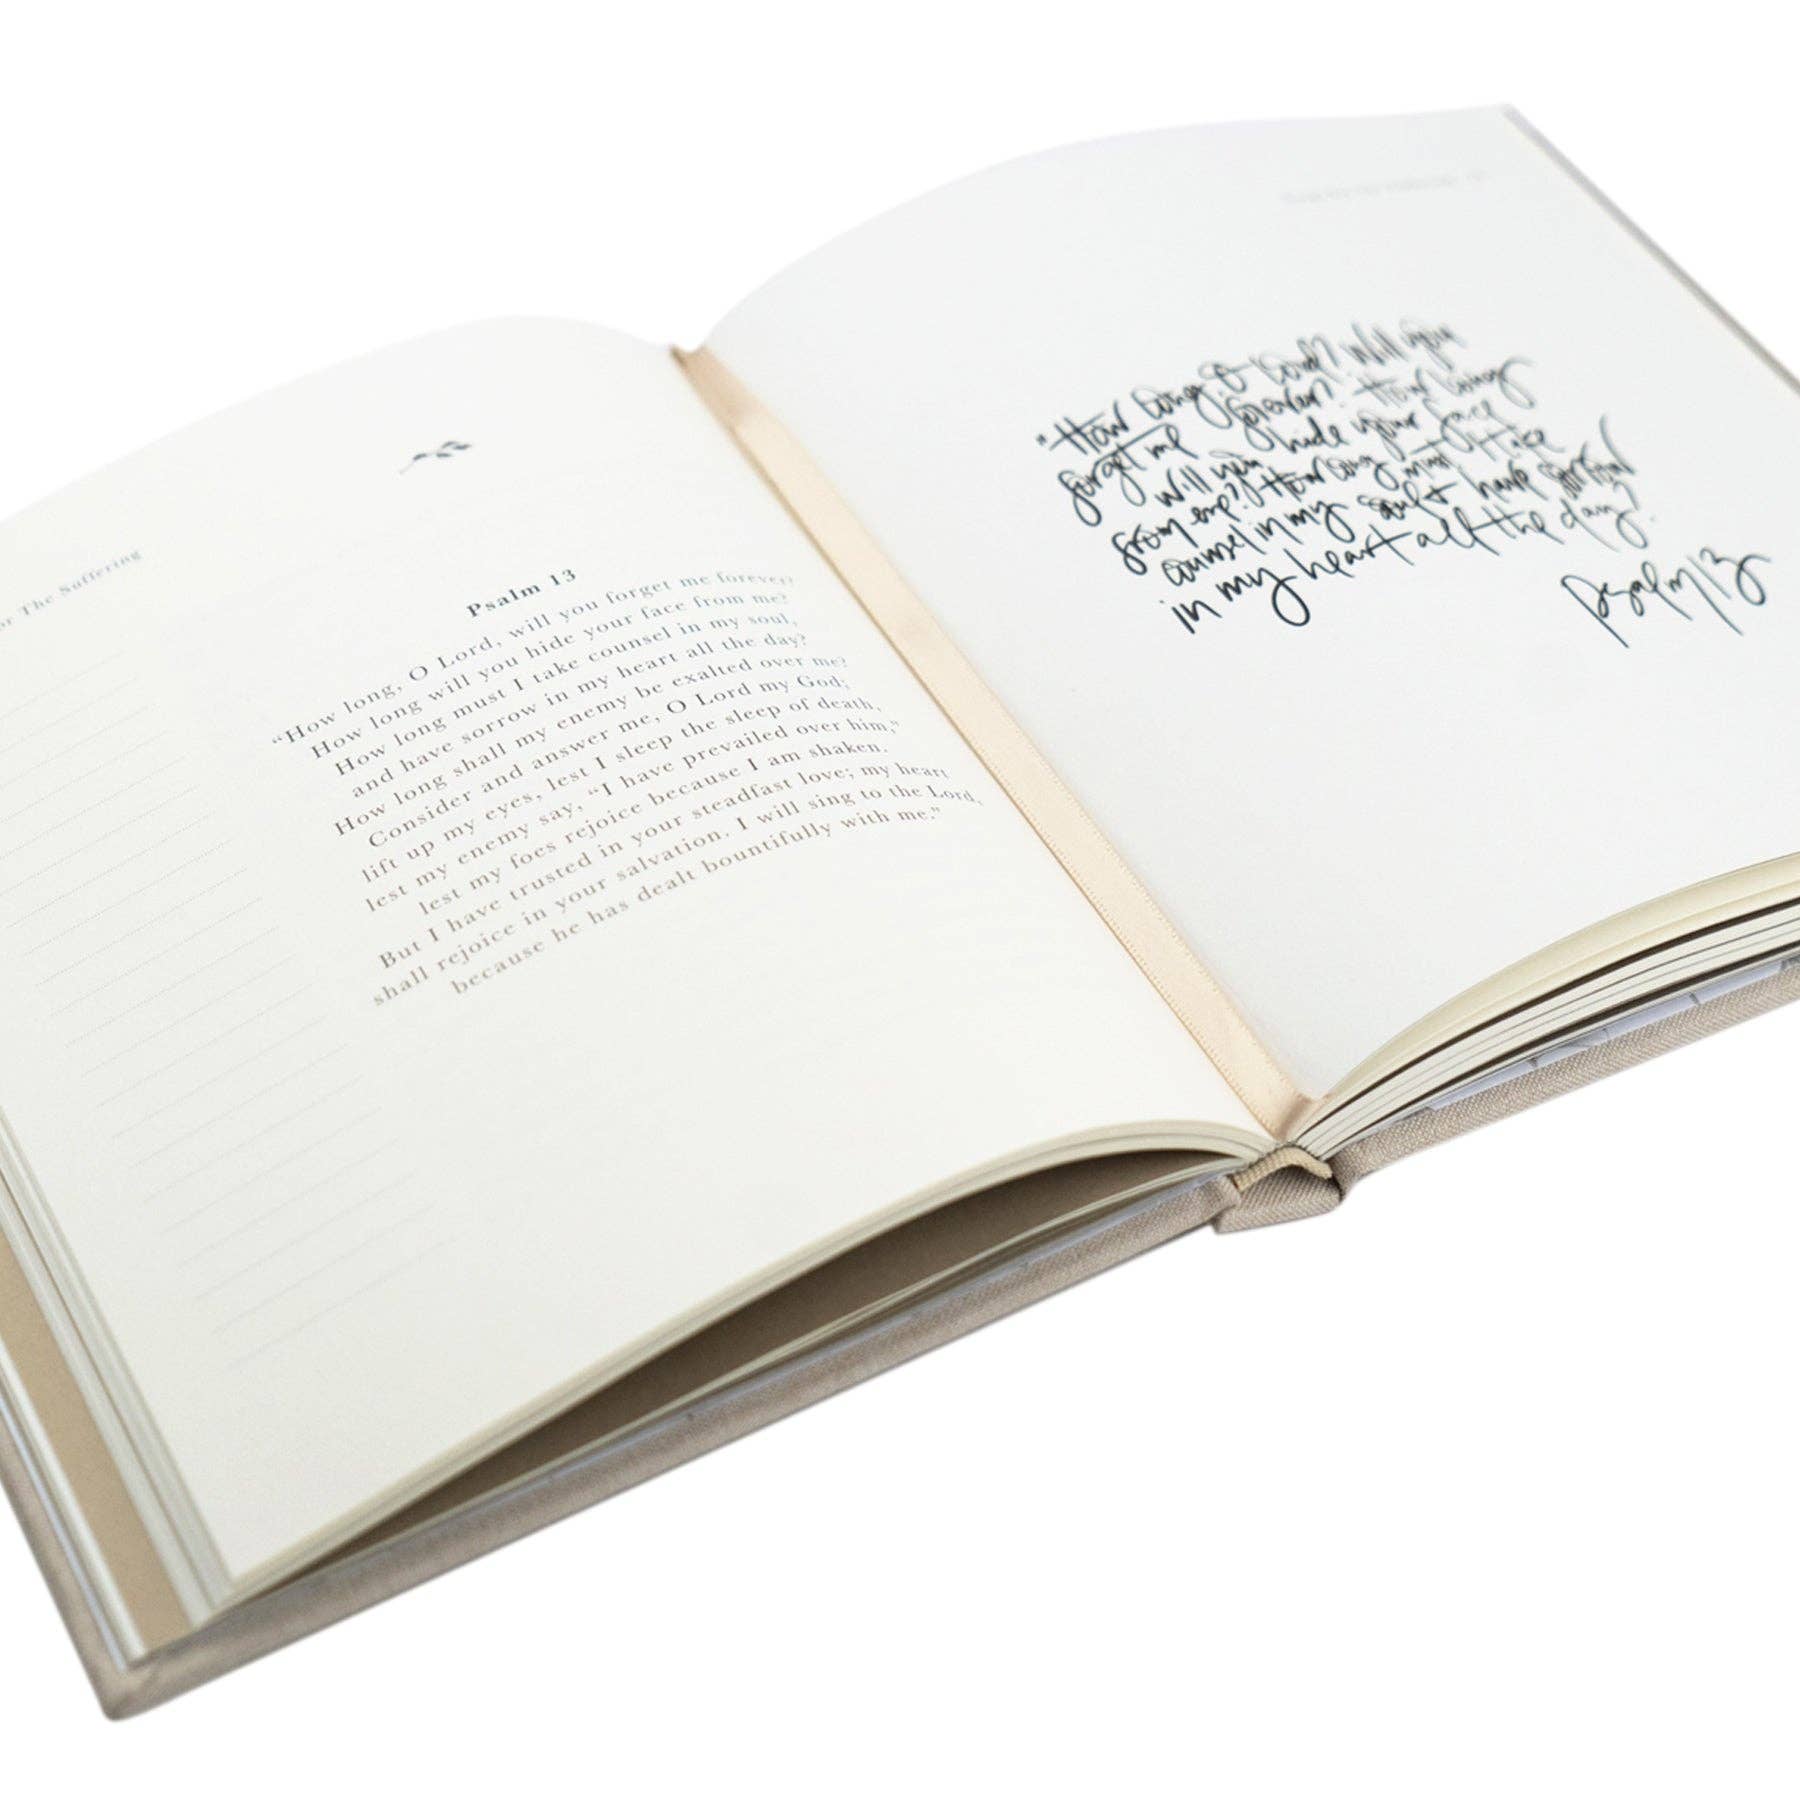 or The Suffering
Psalm 13
“How long, O Lord, will you forget me forever?
How long will you hide your face from me?
How long must I take counsel in my soul,
and have sorrow in my heart all the day?
How long shall my enemy be exalted over me?
Consider and answer me, O Lord my God;
lift up my eyes, lest I sleep the sleep of death,
lest my enemy say, “I have prevailed over him,”
lest my foes rejoice because I am shaken.
But I have trusted in your steadfast love; my heart
shall rejoice in your salvation. I will sing to the Lord,
because he has dealt bountifully with me.”
"How long, O Lord? Will you
forget me forever? How long
will you hide your face
from me? How long must I take
counsel in my soul + have sorrow
in my heart all the day?
Psalm 13